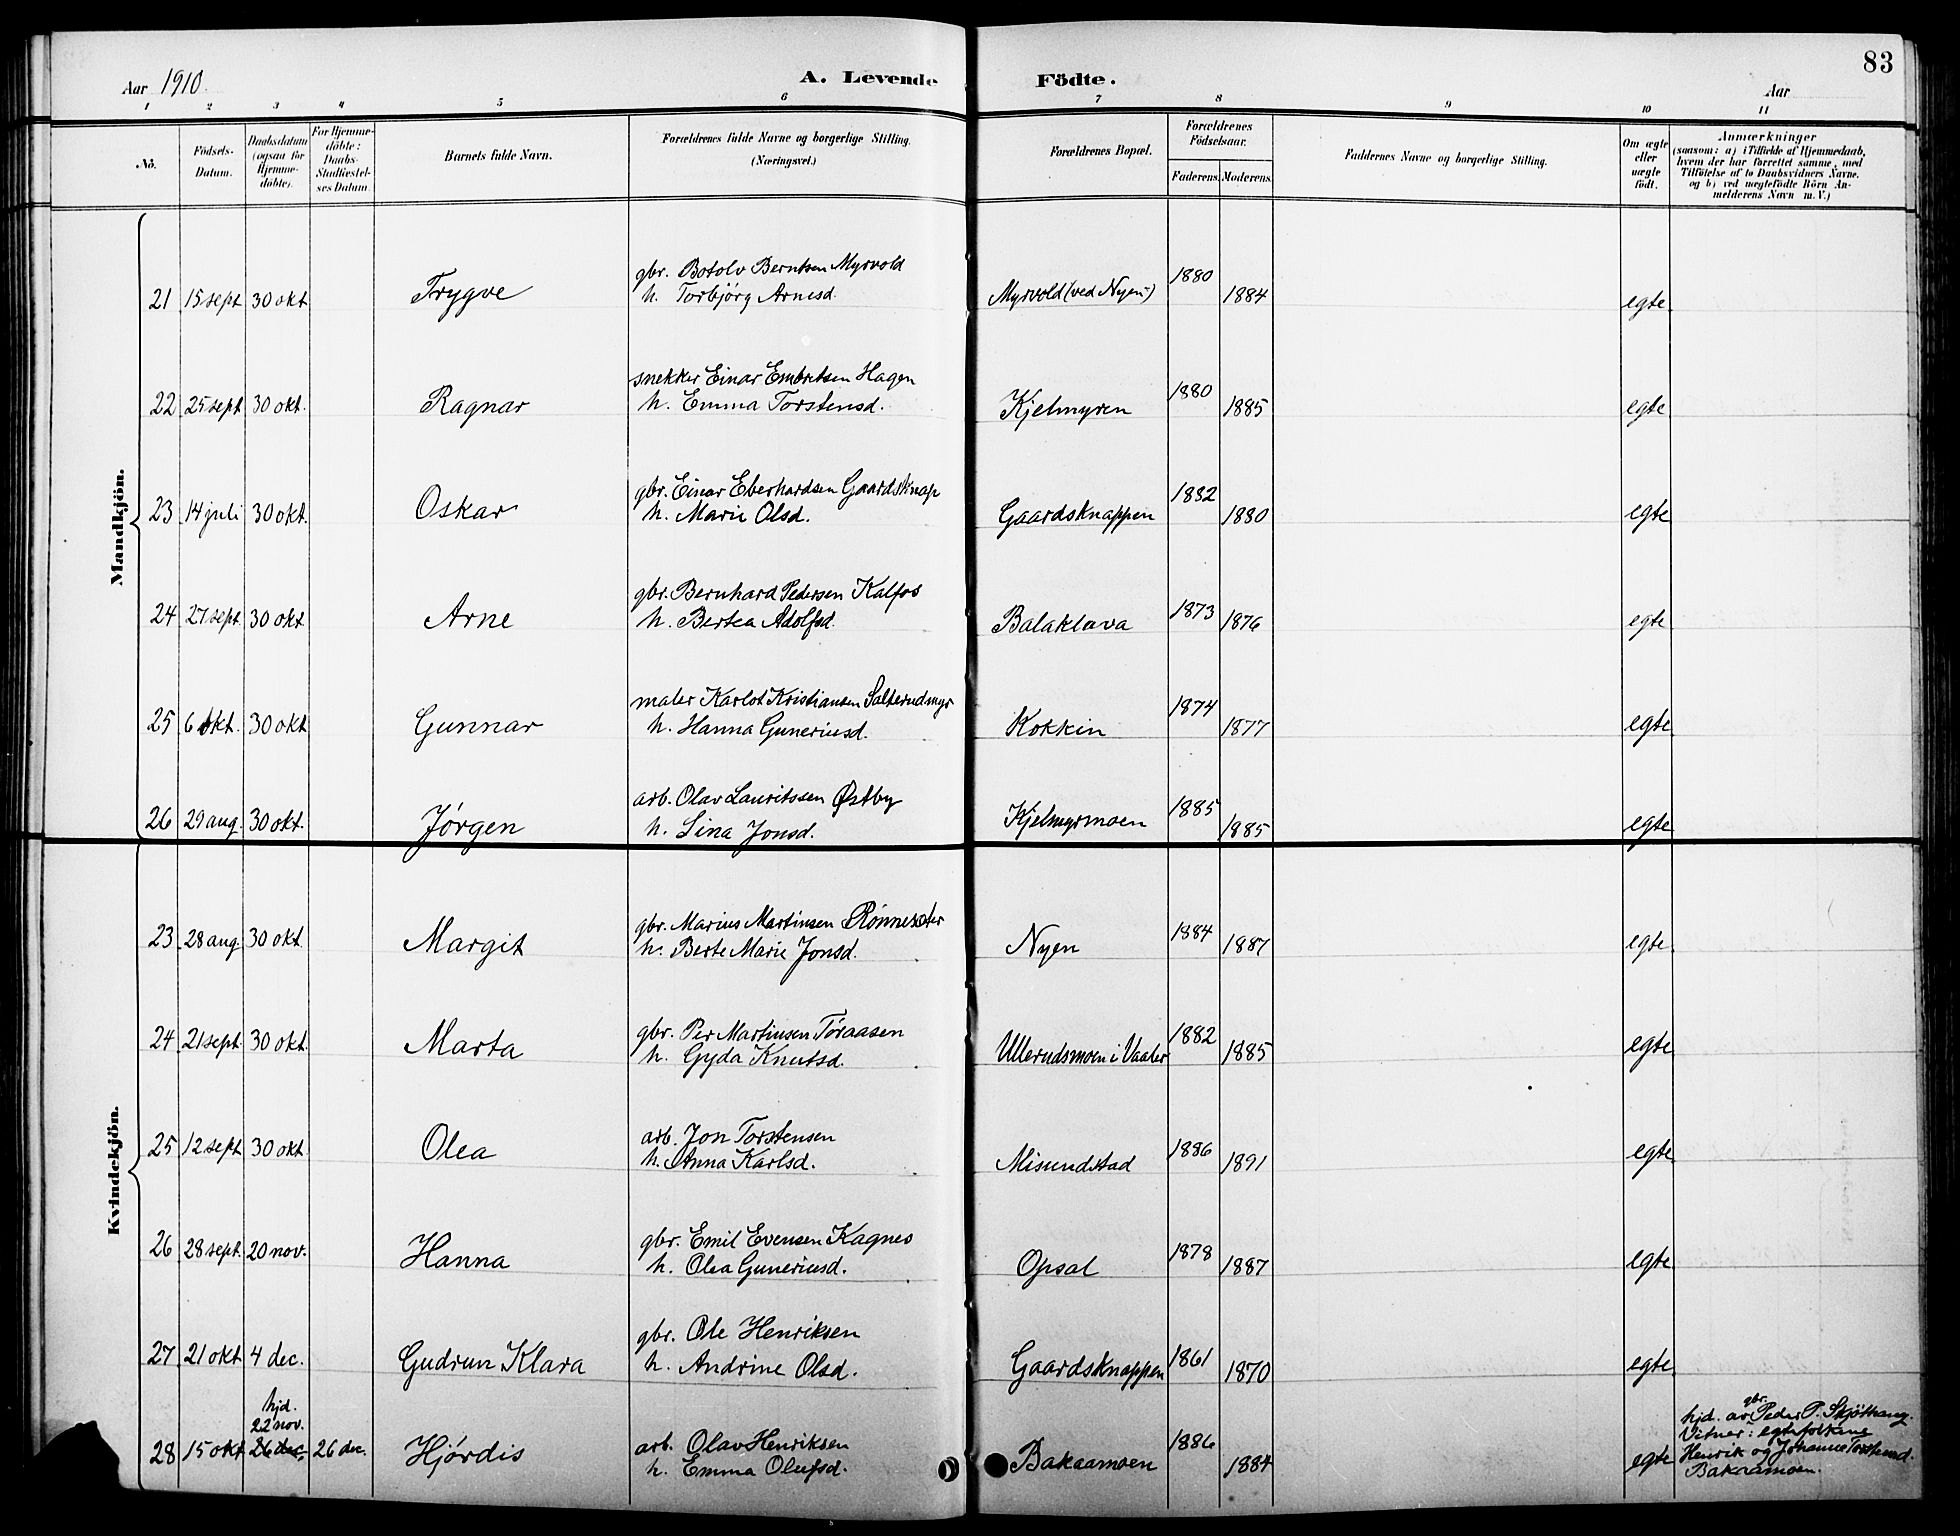 83
Aar 1910. A. Levende Födte. Aar
1 2 3 4 5 6 7 8 9 10 11
No. Födsels-Datum. Daabsdatum (ogsaa for Hjemme-döbte). For Hjemme-döbte: Daabs-Stadfæstel-ses Datum. Barnets fulde Navn. Forældrenes fulde Navne og borgerlige Stilling. (Næringsvei.) Forældrenes Bopæl. Forældrenes Födselsaar. Faderens. Moderens. Faddernes Navne og borgerlige Stilling. Om ægte eller uægte födt. Anmærkninger (saasom: a) i Tilfælde af Hjemmedaab, hvem der har forrettet samme, med Tilföielse af to Daabsvidners Navne. og b) ved uægtefödte Börn An-melderens Navn m. V.)
Mandkjön.
gbr. Botolv Berntsen Myrvold 1880
21 15 sept 30 okt Trygve h. Torbjørg Arnesd. Myrvold (ved Nyen) 1884 egte
snekker Einar Embretsen Hagen 1880
22 25 sept 30 okt. Ragnar h. Emma Torstensd. Kjelmyren 1885 egte
gbr. Einar Eberhardsen Gaardsknap 1882
23 14 juli 30 okt. Oskar h. Marie Olsd. Gaardsknappen 1880 egte
gbr. Bernhard Pedersen Kalfos 1873
24 27 sept. 30 okt Arne h. Bertea Adolfsd. Balaklava 1876 egte
maler Karlot Kristiansen Salterudmyr 1874
25 6 okt. 30 okt Gunnar h. Hanna Guneriusd. Kokkin 1877 egte
arb. Olav Lauritssen Østby 1885
26 29 aug. 30 okt. Jørgen h. Lina Jonsd. Kjelmyrmoen 1885 egte
Kvindekjön.
gbr. Marius Martinsen Rønnesæter 1884
23 28 aug. 30 okt. Margit h. Berte Marie Jonsd. Nyen 1887 egte
gbr. Per Martinsen Tøraasen 1882
24 21 sept. 30 okt. Marta h. Gyda Knutsd. Ullerudsmoen i Vaaler 1885 egte
arb. Jon Torstensen 1886
25 12 sept 30 okt Olea h. Anna Karlsd. Misundstad 1891 egte
gbr. Emil Evensen Kagnes 1878
26 28 sept. 20 nov. Hanna h. Olea Guneriusd. Opsal 1887 egte
gbr. Ole Henriksen 1861
27 21 okt 4 dec. Gudrun Klara h. Andrine Olsd. Gaardsknappen 1870 egte
hjd. 22 nov. arb. Olav Henriksen 1886
28 15 okt. 26 dec. 26 dec. Hjørdis h. Emma Olufsd. Bakaamoen 1884 egte
hjd. av gbr. Peder P. Skjøthaug.
Vitner: egtefolkene
Henrik og Johanne Torstensd.
Bakaamoen.